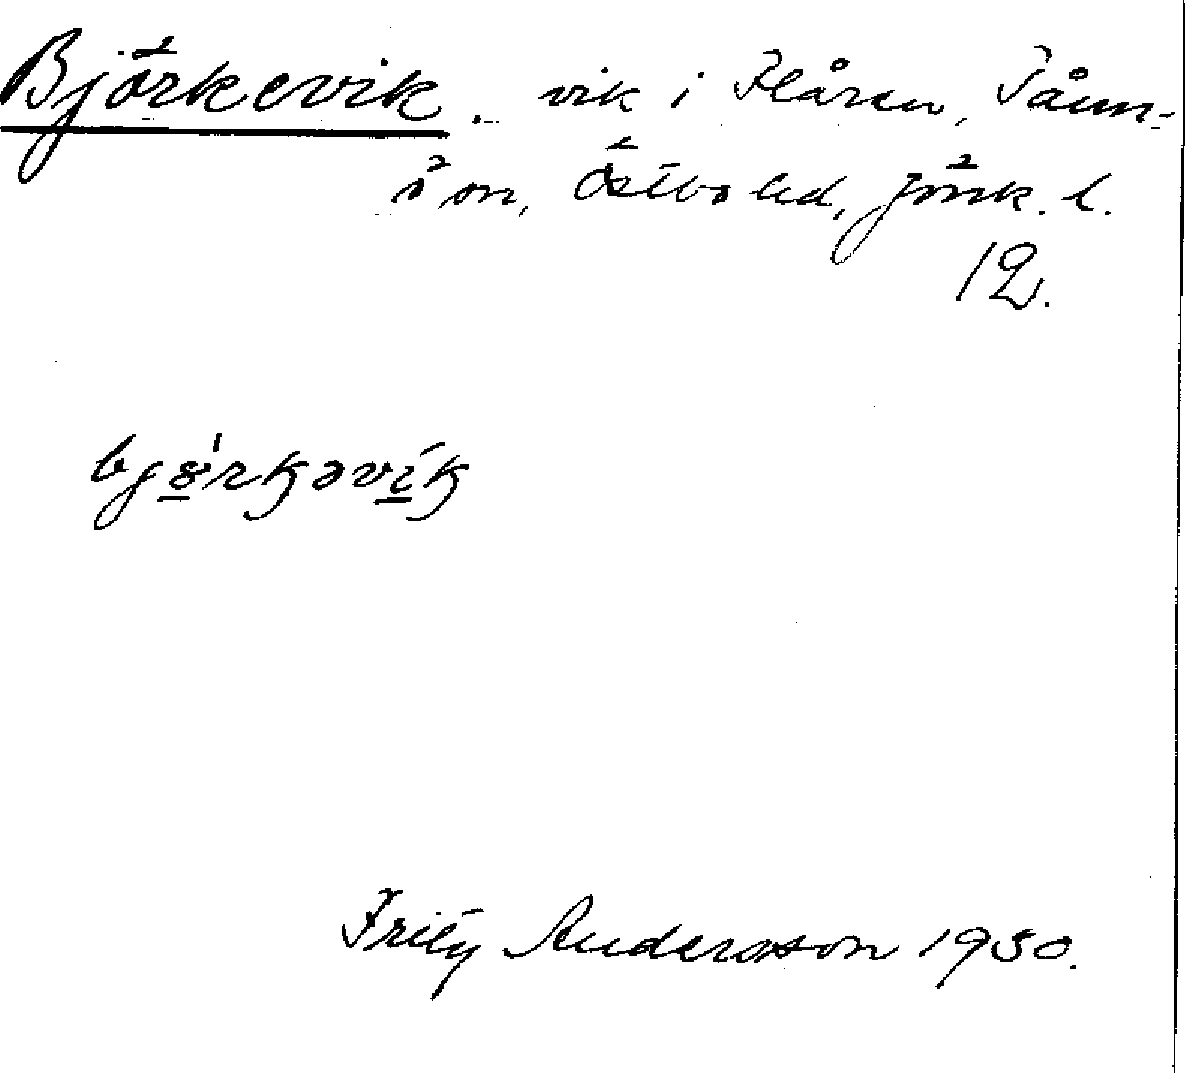 Björkevik. vik i Flåren, Tånn-
ö sn, Östbo hd, Jönk. l.
12.
Fritz Andersson 1930.